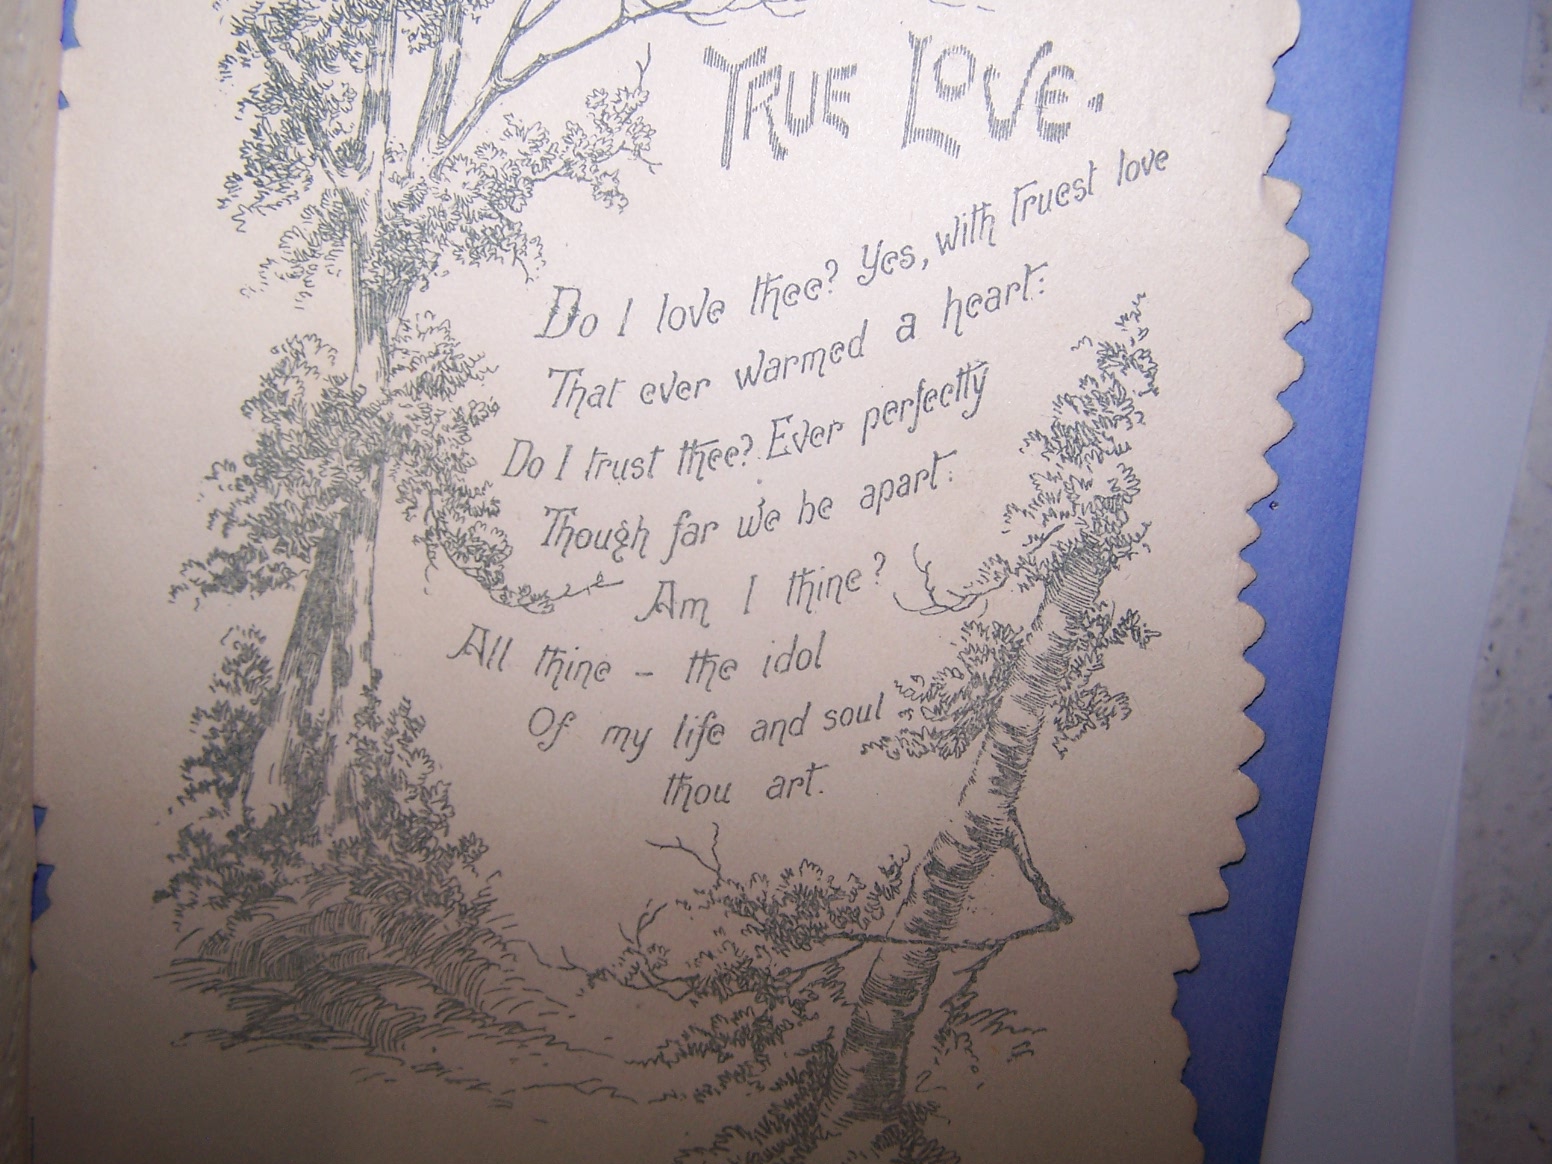 TRUE LOVE.
Do I love thee? Yes, with truest love
That ever warmed a heart:
Do I trust thee? Ever perfectly
Though far we be apart:
Am I thine?
All thine – the idol
Of my life and soul
thou art.